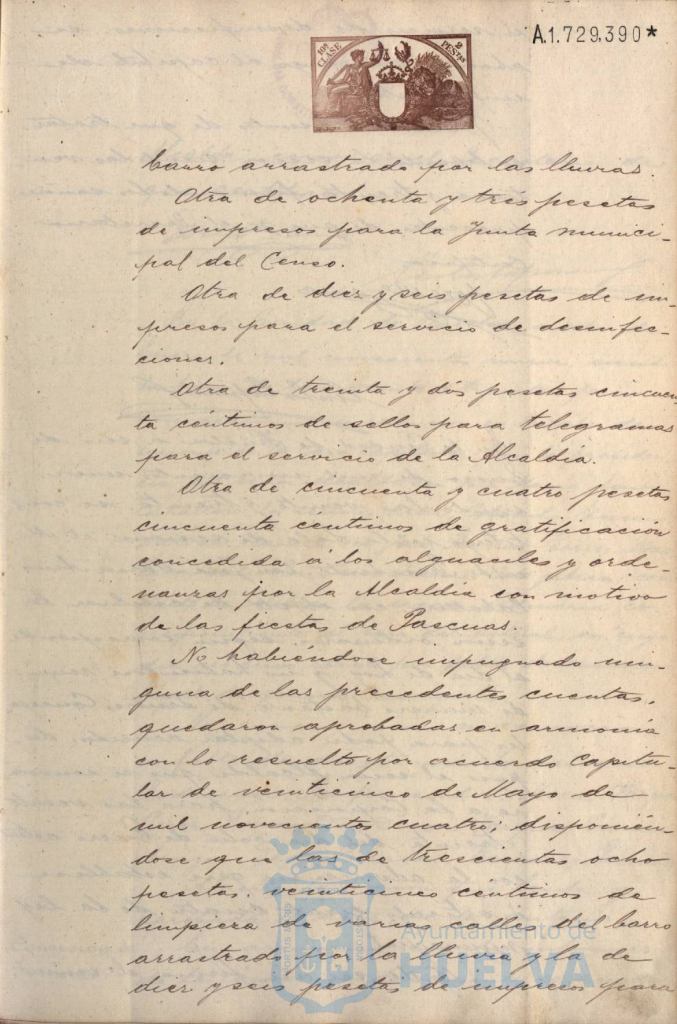 10ª CLASE
2 PESTAS
A.1.729,390*
barro arrastrado por las lluvias.
Otra de ochenta y tres pesetas
de impresos para la Junta munici-
pal del Censo.
Otra de diez y seis pesetas de im-
presos para el servicio de desinfec-
ciones.
Otra de treinta y dós pesetas cincuen-
ta céntimos de sellos para telegramas
para el servicio de la Alcaldía.
Otra de cincuenta y cuatro pesetas
cincuenta céntimos de gratificación
concedida á los alguaciles y orde-
nanzas por la Alcaldía con motivo
de las fiestas de Pascuas.
No habiéndose impugnado nin-
guna de las precedentes cuentas,
quedaron aprobadas en armonía
con lo resuelto por acuerdo Capitu-
lar de veinticinco de Mayo de
mil novecientos cuatro; disponién-
dose que las de trescientas ocho
pesetas veinticinco céntimos de
limpieza de varias calles del barro
arrastrado por la lluvia y la de
diez y seis pesetas de impresos para
Ayuntamiento de
HUELVA